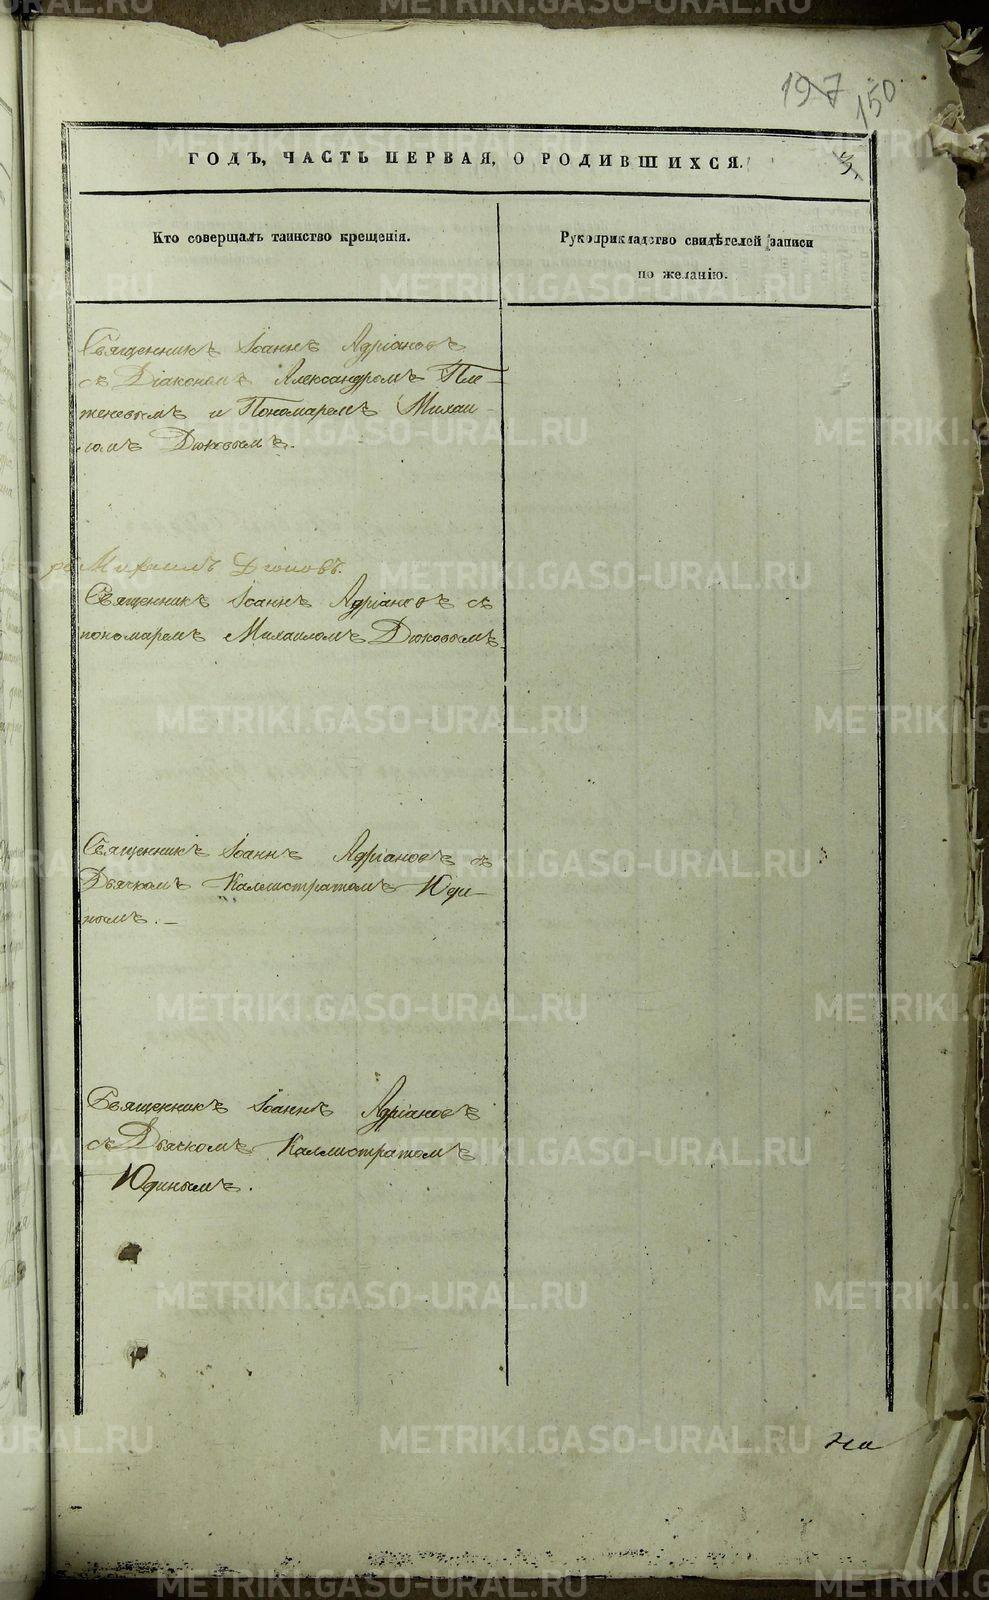 197
150
ГОДЪ, ЧАСТЬ ПЕРВАЯ, О РОДИВШИХСЯ.
3.
Кто совершалъ таинство крещенія.
Рукоприкладство свидѣтелей записи
по желанію.
Священникъ Іоаннъ Адріановъ
съ Діакономъ Александромъ Пле-
теневымъ и Пономаремъ Михаи-
ломъ Дюковымъ.
Михаилъ Дюковъ.
Священникъ Іоаннъ Адріановъ съ
пономаремъ Михаиломъ Дюковымъ.
Священникъ Іоаннъ Адріановъ съ
Дьячкомъ Каллистратомъ Юди-
нымъ. —
Священникъ Іоаннъ Адріановъ
съ Дьячкомъ Каллистратомъ
Юдинымъ.
На
METRIKI.GASO-URAL.RU